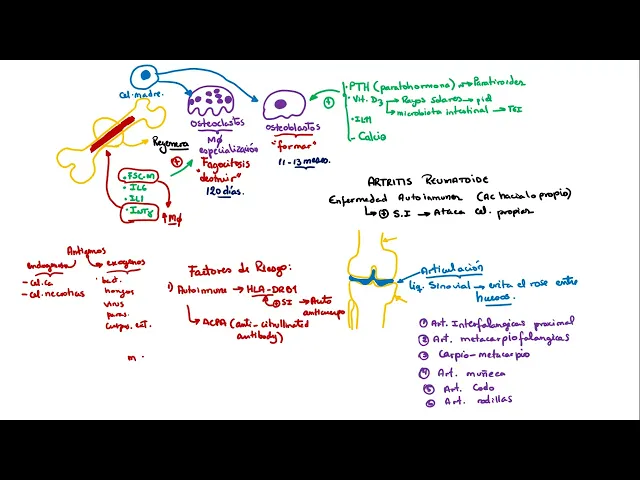 Cel. madre.
osteoclastos
MØ
especialización
Fagocitosis
"destruir"
120 días.
osteoblastos
"formar"
11-13 meses.
+
• PTH (paratohormona) → Paratiroides
• Vit. D3 → Rayos solares → piel
→ microbiota intestinal → TGI
• IL11
- Calcio
Regenera
+
• FSC-M
• IL6
• IL1
• INTγ
↑ MØ
ARTRITIS REUMATOIDE
Enfermedad Autoinmune (Ac hacia lo propio)
↳ + S.I → Ataca cel. propias
Antígenos
endogenos
- cel. ca
- cel. necroticas
exogenos
bact.
hongos
virus
paras.
cuerpos. ext.
m .
Factores de Riesgo:
1) Autoinmune → HLA-DRB1
+ SI → Auto
anticuerpo
→ ACPA (anti-citrullinated
antibody)
Articulación
Liq. Sinovial → evita el rose entre
huesos.
1 Art. Interfalangicas proximal
2 Art. metacarpiofalangicas
3 Carpio-metacarpio
4 Art. muñeca
5 Art. Codo
6 Art. rodillas